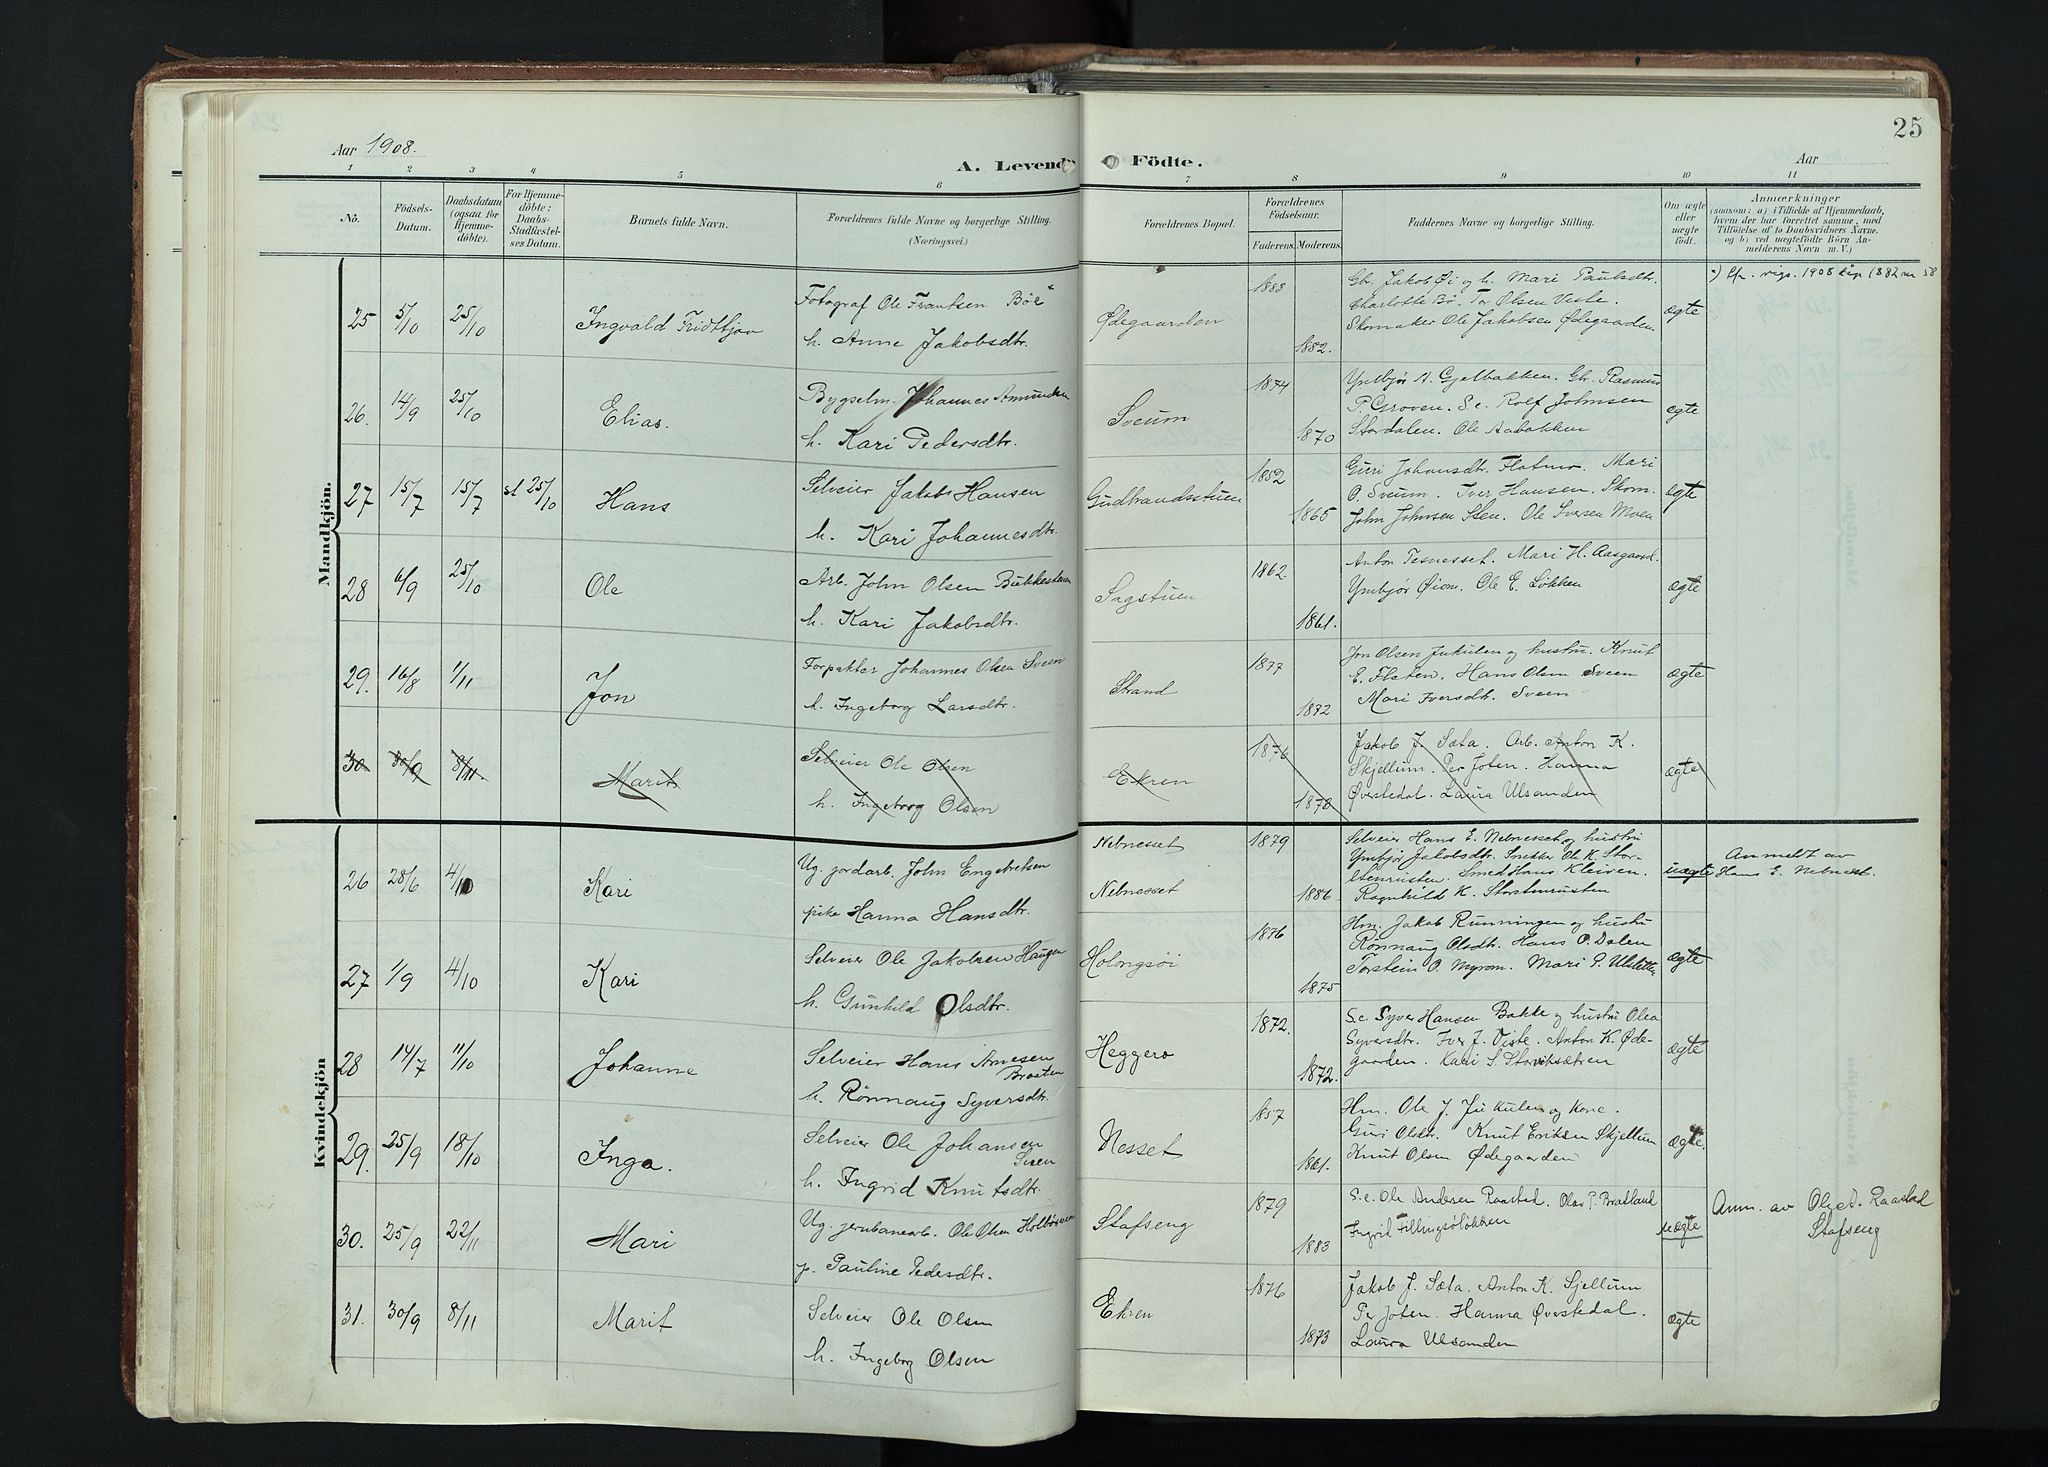 25
Aar 1908.
A. Levende Födte.
Aar
1 2 3 4 5 6 7 8 9 10 11
No.
Födsels-Datum.
Daabsdatum (ogsaa for Hjemme-döbte).
For Hjemme-döbte: Daabs-Stadfæstel-ses Datum.
Barnets fulde Navn.
Forældrenes fulde Navne og borgerlige Stilling.
(Næringsvei.)
Forældrenes Bopæl.
Forældrenes Födselsaar.
Faderens. Moderens.
Faddernes Navne og borgerlige Stilling.
Om ægte eller uægte födt.
Anmærkninger
(saasom: a) i Tilfælde af Hjemmedaab,
hvem der har forrettet samme, med
Tilföielse af to Daabsvidners Navne,
og b) ved uægtefödte Börn An-
melderens Navn m. V.)
Mandkjön.
25 5/10 25/10 Ingvald Fridtjov
Fotograf Ole Frantsen Böe
h. Anne Jakobsdtr.
Ødegaarden
1883
1882.
Gbr. Jakob Øi og h. Mari Paulsdtr.
Charlotte Bö. Tor Olsen Veste.
Skomaker Ole Jakobsen Ødegaarden
ægte
1908
26. 14/9 25/10 Elias.
Bygselm. Johannes Amundsen
h. Kari Pedersdtr.
Sveum
1874
1870
Ymbjør A. Gjelbakken. Gbr. Rasmus
P. Groven. S.e. Rolf Johnsen
Stordalen. Ole Aabakken
ægte
27 15/7 15/7 st 25/10 Hans
Selveier Jakob Hansen
h. Kari Johannesdtr.
Gudbrandsstuen
1852
1865
Guri Johansdtr. Flatmo. Mari
O. Sveum. Iver Hansen. Skom.
John Johnsen Sten. Ole Iversen Moen
ægte
28 6/9 25/10 Ole
Arb. John Olsen Bukkestuen
h. Kari Jakobsdtr.
Sagstuen
1862
1861.
Anton Tesnesset. Mari H. Aasgaard.
Ymbjør Øien. Ole E. Løkken
ægte
29. 16/8 1/11 Jon
Forpakter Johannes Olsen Sveen
h. Ingeborg Larsdtr.
Strand
1877
1872
Jon Olsen Jukulen og hustru. Knut
E. Flaten. Hans Olsen Sveen
Mari Iversdtr. Sveen
ægte
30 30/9 8/11. Marit
Selveier Ole Olsen
h. Ingeborg Olsen
Ekren
1876
1873
Jakob J. Sæta. Arb. Anton K.
Skjellum. Per Joten. Hanna
Øverstedal. Laura Ulsanden
ægte
Kvindekjön
26 28/6 4/10 Kari
Ug. jordarb. John Engebretsen
pike Hanna Hansdtr.
Nebnesset
Nebnesset
1879
1886.
Selveier Hans E. Nebnesset og hustru
Ymbjør Jakobsdtr. Snekker Ole K. Stor-
stenrusten. Smed Hans Kleiven.
Ragnhild K. Storstenrusten
uægte
Anmeldt av
Hans E. Nebnesset.
27 1/9 4/10 Kari
Selveier Ole Jakobsen Haugen
h. Gunhild Olsdtr.
Holongsöi
1876
1875
Hm. Jakob Runningen og hustru
Rønnaug Olsdtr. Hans O. Dalen
Torstein O. Myrom. Mari P. Ulstetten
ægte
28 14/7 11/10 Johanne
Selveier Hans Arnesen
Braaten
h. Rønnaug Syversdtr.
Heggero
1872.
1872.
S.e. Syver Hansen Bakke og hustru Olea
Syversdtr. Iver J. Viste. Anton K. Øde-
gaarden. Kari S. Storviksætren
ægte
29. 25/9 18/10 Inga.
Selveier Ole Johansen
Sveen
h. Ingrid Knutsdtr.
Nesset
1857
1861.
Hm. Ole J. Jukulen og kone.
Guri Olsdtr. Knut Eriksen Skjellum
Knut Olsen Ødegaarden
ægte.
30. 25/9 22/11 Mari
Ug. jernbanearb. Ole Olsen
p. Pauline Pedersdtr.
Stafseng
1879
1883
S.e. Ole Andersen Raastad. Olav P. Bratland
Ingrid Fillingsöløkken
uægte
Anm. av Ole A. Raastad
Stafseng
31. 30/9 8/11 Marit
Selveier Ole Olsen
h. Ingeborg Olsen
Ekren
1876
1873
Jakob J. Sæta. Anton K. Sjellum
Per Joten. Hanna Øverstedal.
Laura Ulsanden
ægte